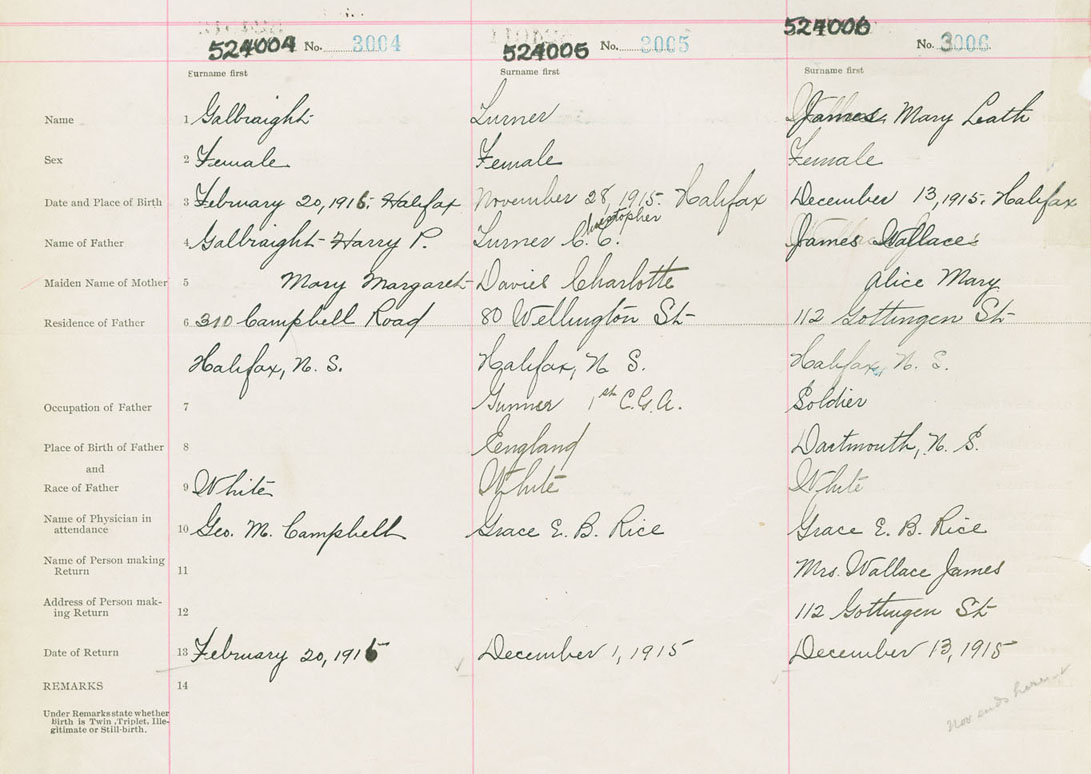 524004 No. 3004 524005 No. 3005 524006 No. 3006
Surname first Surname first Surname first
Name 1 Galbraight Turner James, Mary Leath
Sex 2 Female Female Female
Date and Place of Birth 3 February 20, 1916. Halifax November 28, 1915. Halifax December 13, 1915. Halifax
Christopher
Name of Father 4 Galbraight - Harry P. Turner C. C. James Wallace
Maiden Name of Mother 5 Mary Margaret Davies Charlotte Alice Mary
Residence of Father 6 310 Campbell Road 80 Wellington St 112 Gottingen St
Halifax, N. S. Halifax, N. S. Halifax, N. S.
Occupation of Father 7 Gunner 1st C.G.A. Soldier
Place of Birth of Father 8 England Dartmouth, N. S.
and
Race of Father 9 White White White
Name of Physician in
attendance 10 Geo. M. Campbell Grace E. B. Rice Grace E. B. Rice
Name of Person making
Return 11 Mrs. Wallace James
Address of Person mak-
ing Return 12 112 Gottingen St
Date of Return 13 February 20, 1916 December 1, 1915 December 13, 1915
REMARKS 14
Under Remarks state whether
Birth is Twin, Triplet, Ille-
gitimate or Still-birth.
Nov ends here